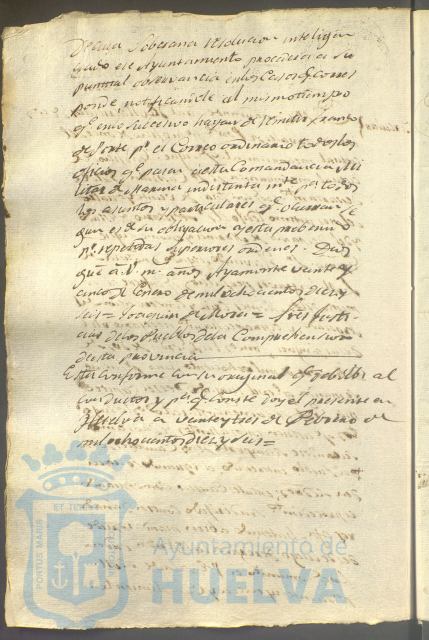 Soberana resolucion inteligen
ciado ese Ayuntamiento procederá a su
puntual observancia en los casos q. corres
ponde notificandole al mismo tiempo
q. en lo sucesivo hayan de remitir francos
de Porte pr. el Correo ordinario todos los
oficios q. pasen a esta Comandancia Mi
litar de Marina indistintamte. pr. todos
los asuntos particulares q. ocurran se
gun es de su obligacion y esta prebenido
pr. repetidas superiores ordenes. Dios
gue. a V. ms. años. Ayamonte veinte y
cinco de Enero de mil ochocientos diez y
seis = Joaquin de = Sres. Justi
cias de los Pueblos de la Comprehension
de esta provincia
Esta conforme con su original q. debolbi al
conductor y pa. q. conste doy el presente en
Huelva a veinte y tres de Febrero de
mil ochocientos diez y seis =
PORTUS MARIS
ET TERRAE
Ayuntamiento de
HUELVA